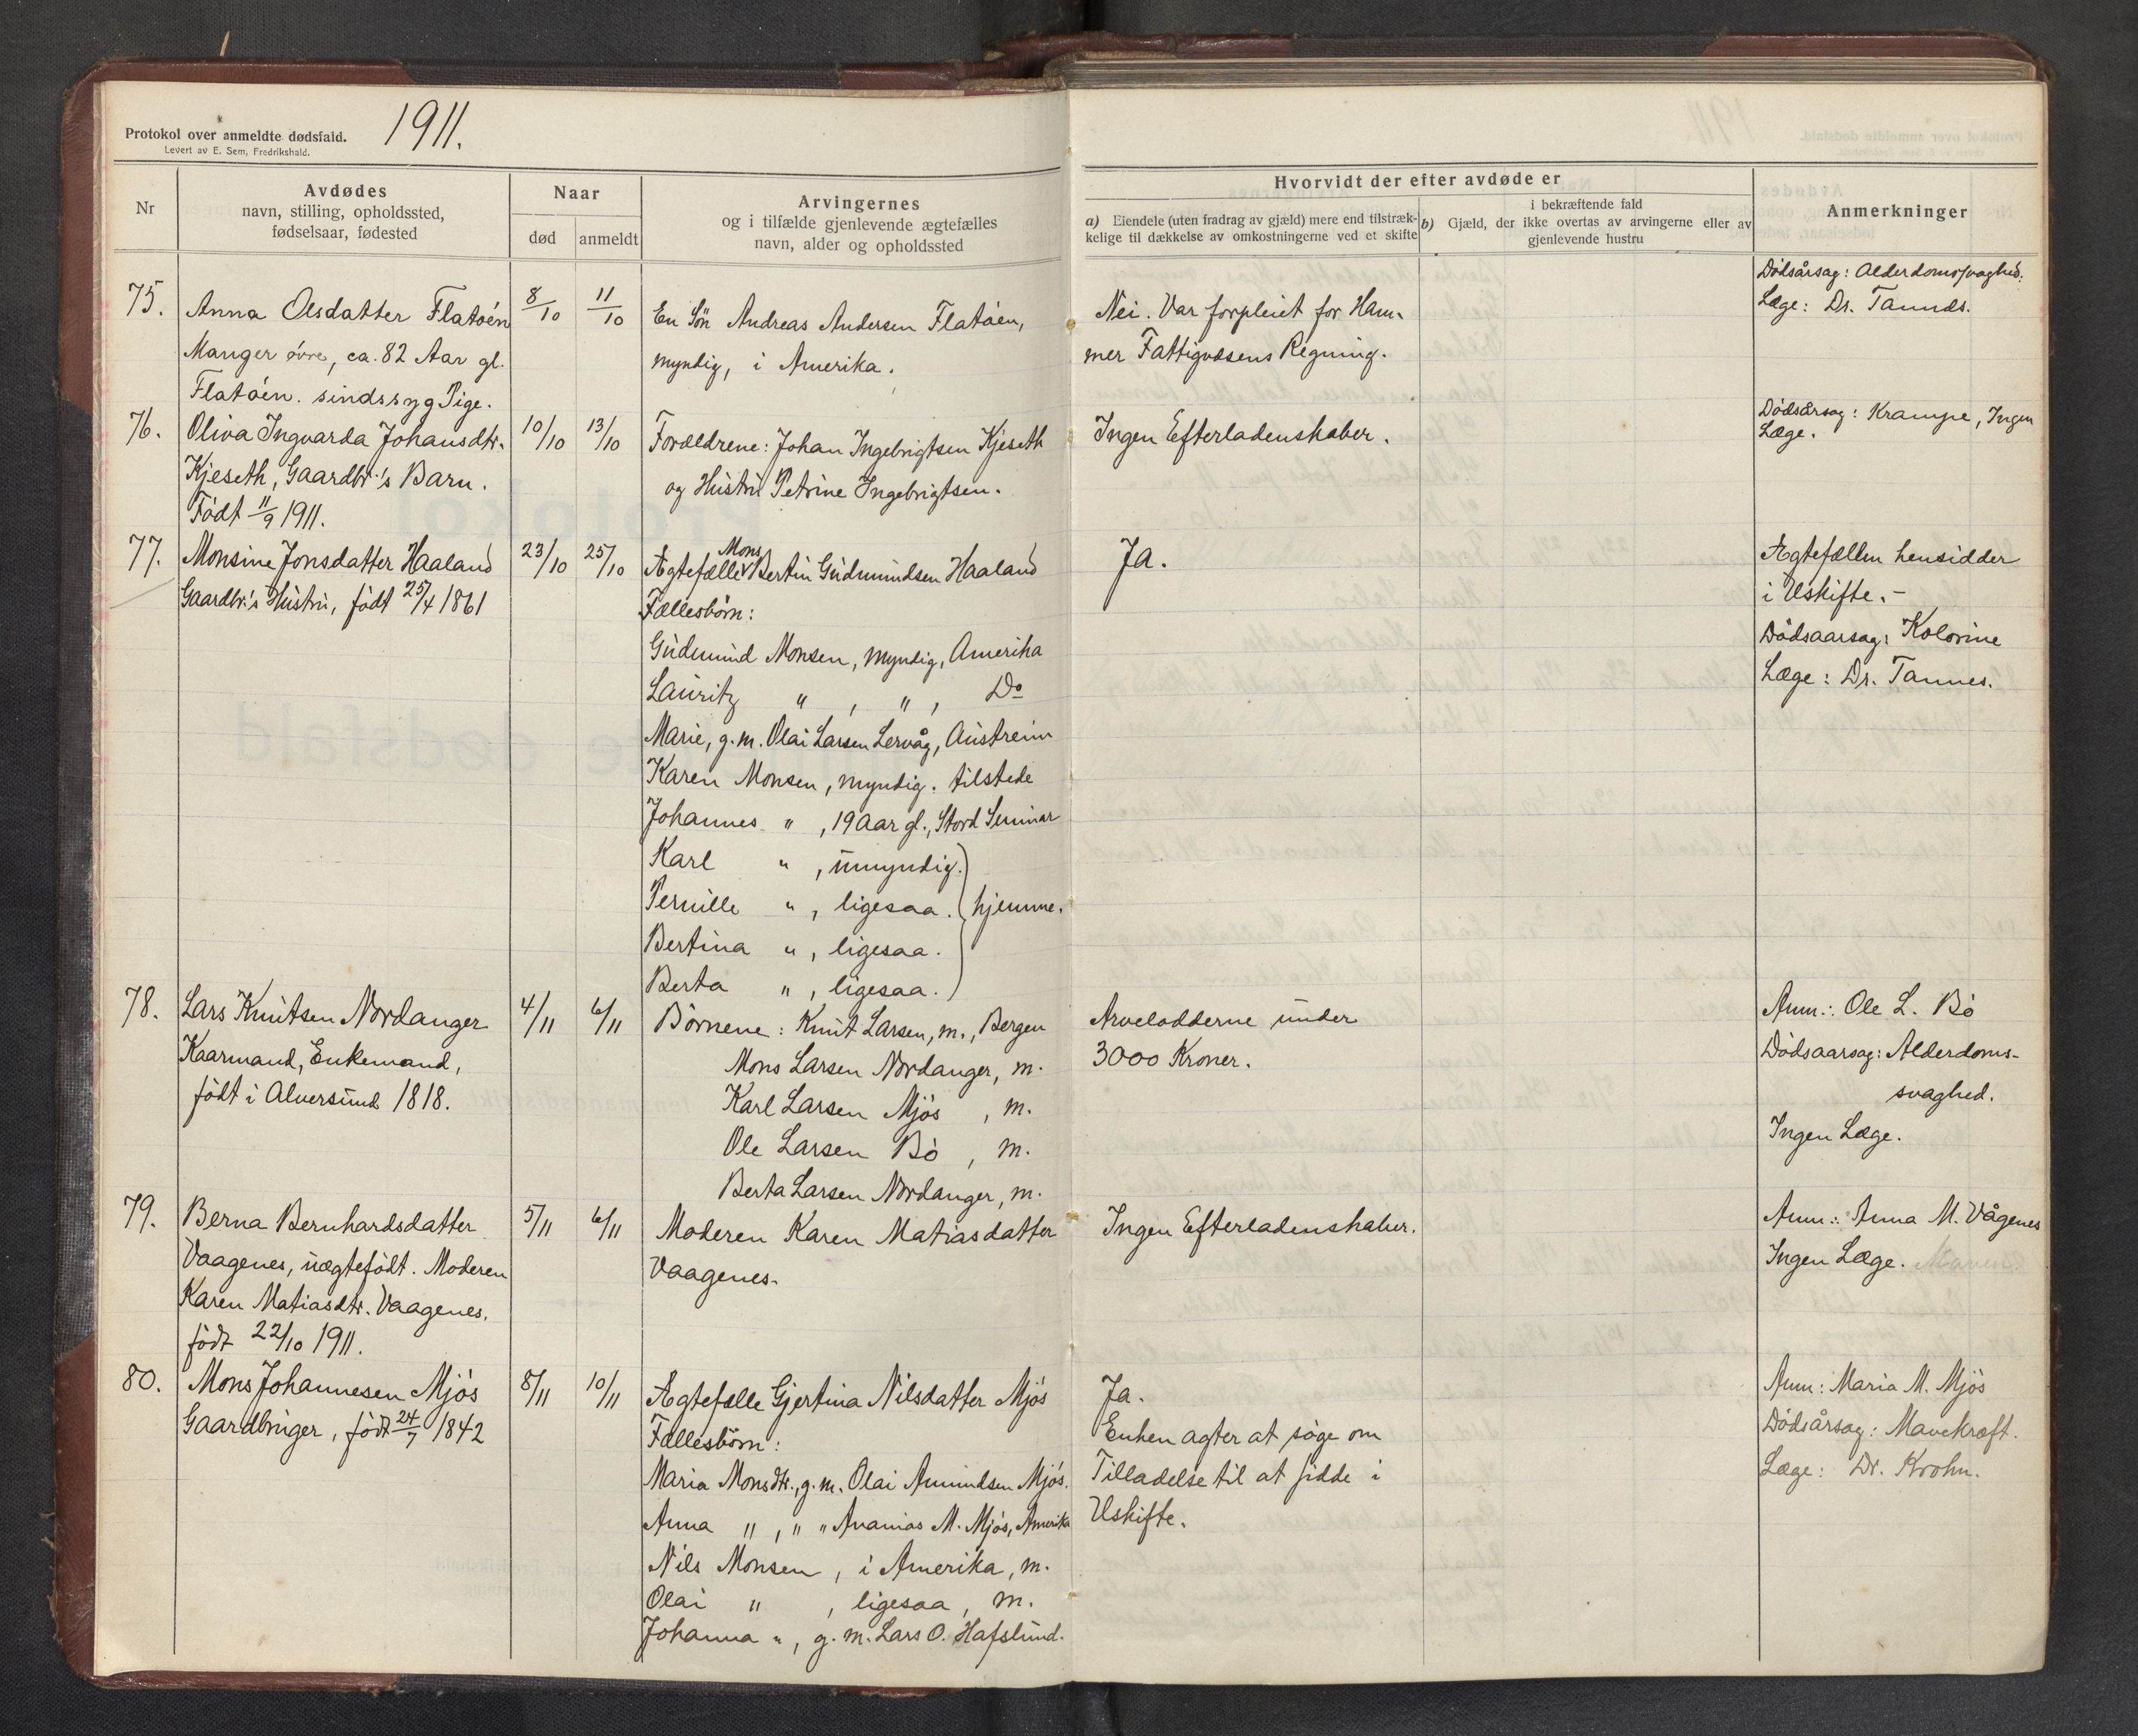 Protokol over anmeldte dødsfald.
Levert av E. Sem, Fredrikshald.
1911.
Nr
Avdødes
navn, stilling, opholdssted,
fødselsaar, fødested
Naar
død
anmeldt
Arvingernes
og i tilfælde gjenlevende ægtefælles
navn, alder og opholdssted
Hvorvidt der efter avdøde er
a) Eiendele (uten fradrag av gjæld) mere end tilstræk-
kelige til dækkelse av omkostningerne ved et skifte
i bekræftende fald
b) Gjæld, der ikke overtas av arvingerne eller av
gjenlevende hustru
Anmerkninger
75.
Anna Olsdatter Flatøen
Manger øvre, ca. 82 Aar gl.
Flatøen. sindssyg Pige.
8/10
11/10
En Søn Andreas Andersen Flatøen,
myndig, i Amerika.
Nei. Var forpleiet for Ham-
mer Fattigvæsens Regning.
Dødsårsag: Alderdomssvaghed.
Læge: Dr. Tannæs.
76.
Oliva Ingvarda Johansdtr.
Kjeseth, Gaardbr.'s Barn.
Født 11/9 1911.
10/10
13/10
Forældrene: Johan Ingebrigtsen Kjeseth
og Hustru Petrine Ingebrigtsen.
Ingen Efterladenskaber.
Dødsårsag: Krampe, Ingen
Læge.
77.
Monsine Jonsdatter Haaland
Gaardbr.'s Hustru, født 25/4 1861
23/10
25/10
Mons
Ægtefælle Bertin Gudmundsen Haaland
Fællesbørn:
Gudmund Monsen, myndig, Amerika
Lauritz " , " , Do
Marie, g.m. Olai Larsen Lervåg, Austreim
Karen Monsen, myndig. tilstede
Johannes " , 19 Aar gl., Stord Seminar
Karl " , umyndig.
Pernille " , ligesaa. hjemme.
Bertina " , ligesaa.
Berta " , ligesaa.
Ja.
Ægtefællen hensidder
i Uskifte.-
Dødsaarsag: Kolorine
Læge: Dr. Tannes.
78.
Lars Knutsen Nordanger
Kaarmand, Enkemand,
født i Alversund 1818.
4/11
6/11
Børnene: Knut Larsen, m., Bergen
Mons Larsen Nordanger, m.
Karl Larsen Mjøs , m.
Ole Larsen Bø , m.
Berta Larsen Nordanger, m.
Arvelodderne under
3000 Kroner.
Anm.: Ole L. Bø
Dødsaarsag: Alderdoms-
svaghed.
Ingen Læge.
79.
Berna Bernhardsdatter
Vaagenes, uægtefødt. Moderen
Karen Matiasdtr. Vaagenes,
født 22/10 1911.
5/11
6/11
Moderen Karen Matiasdatter
Vaagenes.
Ingen Efterladenskaber.
Anm.: Anna M. Vågenes
Ingen Læge.
80.
Mons Johannesen Mjøs
Gaardbruger, født 24/7 1842
8/11
10/11
Ægtefælle Gjertina Nilsdatter Mjøs
Fællesbørn:
Maria Monsdtr., g.m. Olai Amundsen Mjøs.
Anna " , " " Ananias M. Mjøs, Amerika
Nils Monsen, i Amerika, m.
Olai " , ligesaa, m.
Johanna " , g.m. Lars O. Hafslund.
Ja.
Enken agter at søge om
Tilladelse til at sidde i
Uskifte.
Anm: Maria M. Mjøs
Dødsårsag: Mavekræft.
Læge: Dr. Krohn.